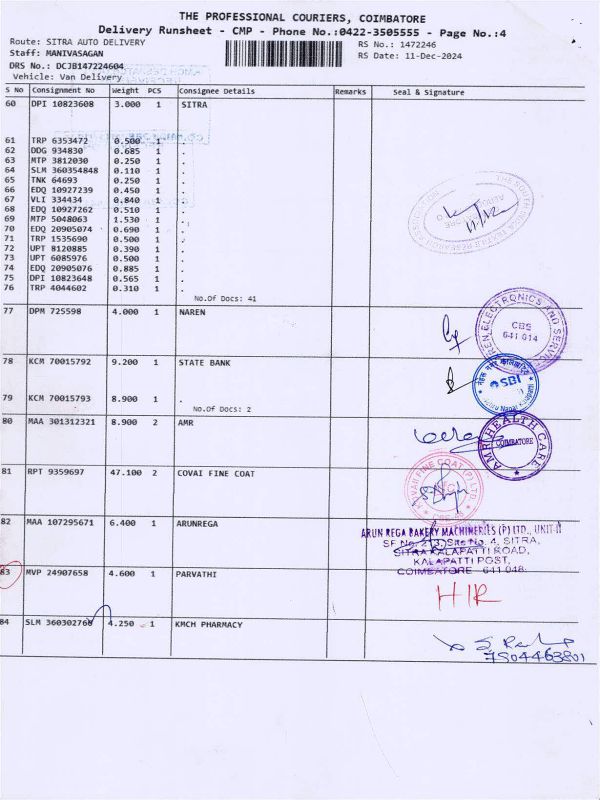 THE PROFESSIONAL COURIERS, COIMBATORE
Delivery Runsheet - CMP - Phone No.:0422-3505555 - Page No.:4
Route: SITRA AUTO DELIVERY
Staff: MANIVASAGAN
DRS No.: DCJB147224604
Vehicle: Van Delivery
RS No.: 1472246
RS Date: 11-Dec-2024
S No Consignment No Weight PCS Consignee Details Remarks Seal & Signature
60 DPI 10823608 3.000 1 SITRA
61 TRP 6353472 0.500 1 .
62 DDG 934830 0.685 1 .
63 MTP 3812030 0.250 1 .
64 SLM 360354848 0.110 1 .
65 TNK 64693 0.250 1 .
66 EDQ 10927239 0.450 1 .
67 VLI 334434 0.840 1 .
68 EDQ 10927262 0.510 1 .
69 MTP 5048063 1.530 1 .
70 EDQ 20905074 0.690 1 .
71 TRP 1535690 0.500 1 .
72 UPT 8120885 0.390 1 .
73 UPT 6085976 0.500 1 .
74 EDQ 20905076 0.885 1 .
75 DPI 10823648 0.565 1 .
76 TRP 4044602 0.310 1 .
No.Of Docs: 41
77 DPM 725598 4.000 1 NAREN
CBE
641 014
78 KCM 70015792 9.200 1 STATE BANK
SBI
79 KCM 70015793 8.900 1 .
No.Of Docs: 2
80 MAA 301312321 8.900 2 AMR
AMR HEALTH CARE
COIMBATORE
81 RPT 9359697 47.100 2 COVAI FINE COAT
82 MAA 107295671 6.400 1 ARUNREGA
ARUN REGA BAKERY MACHINERIES (P) LTD., UNIT-II
SITRA KALAPATTI ROAD,
KALAPATTI POST,
COIMBATORE - 641 048.
83 MVP 24907658 4.600 1 PARVATHI
84 SLM 360302760 4.250 1 KMCH PHARMACY
7504463801